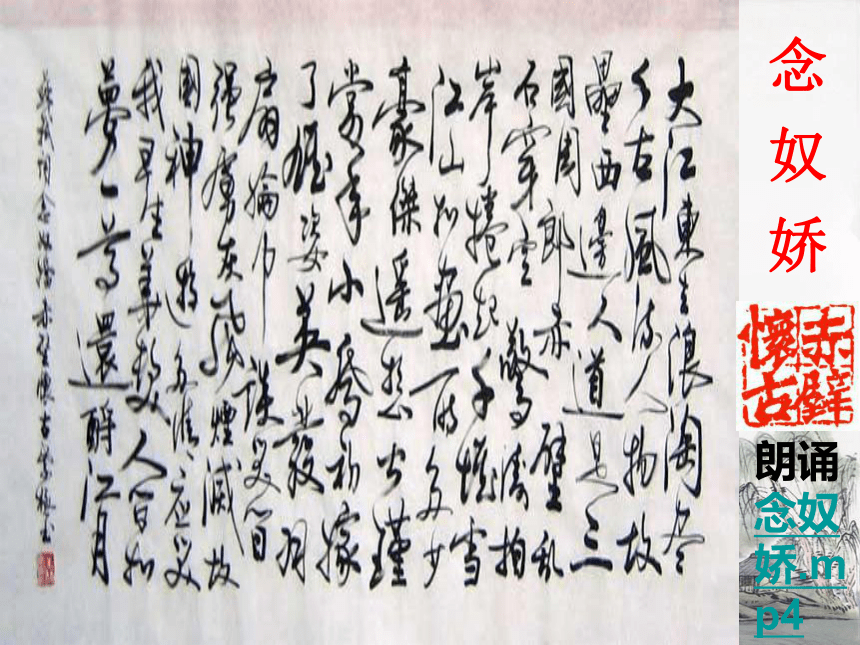 大江東去浪淘盡
千古風流人物故
壘西邊人道是三
國周郎赤壁亂
石穿空驚濤拍
岸捲起千堆雪
江山如畫一時多少
豪傑遙想公瑾
當年小喬初嫁
了雄姿英發羽
扇綸巾談笑間
強虜灰飛煙滅故
國神遊多情應笑
我早生華髮人間如
夢一尊還酹江月
蘇軾詞念奴嬌赤壁懷古
念奴娇
赤壁
懷古
朗诵
念奴
娇.m
p4